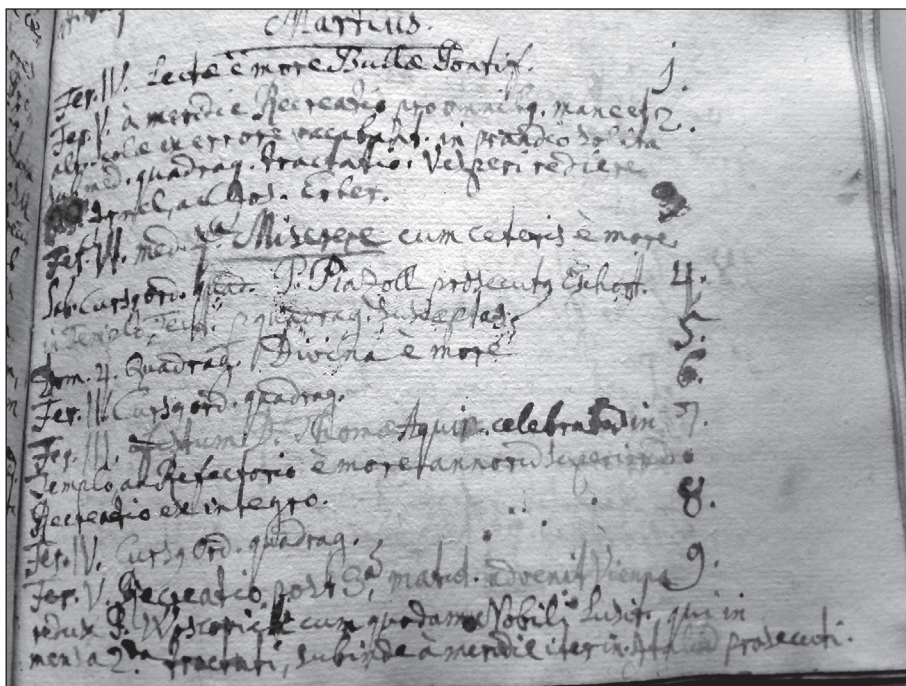 Martius.
Fer. IV. Lectæ è more Bullæ Pontif. 1.
Fer. V. à meridie Recreatio pro omnibq. mane et 2.
scolæ ex errore vacabant. in prandio solita
med. quadrag. tractatio. Vesperi rediere
ac Dos. Erber. 3
Fer. VI. med. Miserere cum ceteris è more
Sab. Cursq ord. quad. P. Piazoll prosecutq Exhort. 4.
in Templo quadrag. susceptas. 5.
Dom. 4. Quadrag. Divina è more
Fer. II. Cursq ord. quadrag. 6.
Fer. III. Festum D. Thomæ Aquin. celebratum in 7.
Templo, ac Refectorio è more annorum superiorum
Recreatio ex integro. 8.
Fer. IV. Cursq Ord. quadrag.
Fer. V. Recreatio. post 3am matut. advenit Vienna 9.
redux P. cum quodam Nobili Lusit. qui in
mensa 2da tractati, subinde à meridie iter in prosecuti.